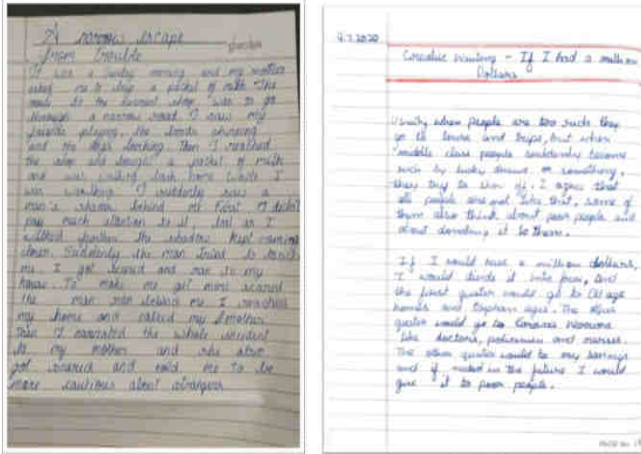 A narrow escape
from Trouble
It was a Sunday morning and my mother
asked me to buy a packet of milk. The
route to the nearest shop, was to go
through a narrow road I saw my
friends playing, the birds chirping
and the dogs barking Then I reached
the shop and bought a packet of milk
and was walking back home While I
was walking I suddenly saw a
man's shadow behind me First I didn't
pay much attention to it, but as I
walked further the shadow kept coming
closer. Suddenly the man tried to touch
me. I got scared and ran to my
house. To make me get more scared
the man ran behind me I reached
my home and called my mother
Then I narrated the whole incident
to my mother and she also
got scared and told me to be
more cautious about strangers
9.7.2020
Creative Writing - If I had a million
Dollars
Usually when people are too rich they
go to tours and trips, but when
middle class people suddenly become
rich by lucky draws or something,
they try to show off. I agree that
all people are not like that, some of
them also think about poor people and
about donating it to them.
If I would have a million dollars,
I would divide it into four, and
the first quater would go to Old age
homes and Orphan ages. The other
quater would go to Corona
like doctors, policemen and nurses.
The other quater would to my savings
and if needed in the future I would
give it to poor people.